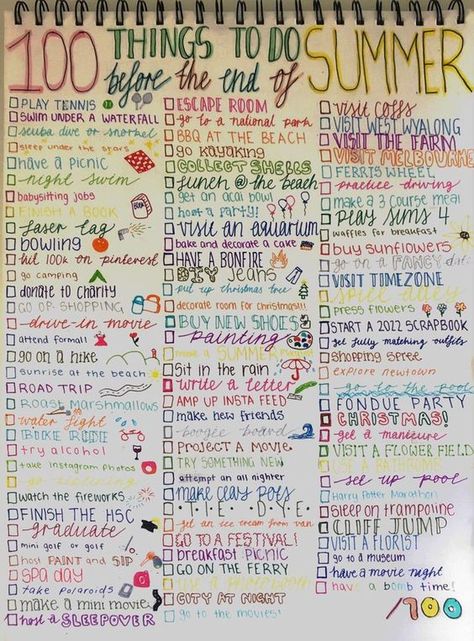 100 THINGS TO DO
before the end of SUMMER
PLAY TENNIS
SWIM UNDER A WATERFALL
scuba dive or snorkel
sleep under the stars
have a picnic
night swim
babysitting jobs
FINISH A BOOK
laser tag
bowling
hit 100k on pinterest
go camping
donate to charity
GO OP-SHOPPING
drive-in movie
attend formal!
go on a hike
sunrise at the beach
ROAD TRIP
Roast Marshmallows
water fight
BIKE RIDE
try alcohol
take instagram photos
watch the fireworks
FINISH THE HSC
graduate
mini golf or golf
host PAINT and SIP
SPA DAY
take polaroids
make a mini movie
host a SLEEPOVER
ESCAPE ROOM
go to a national park
BBQ AT THE BEACH
go kayaking
COLLECT SHELLS
lunch @ the beach
get an acai bowl
host a party!
visit an aquarium
bake and decorate a cake
HAVE A BONFIRE
DIY Jeans
put up christmas tree
decorate room for christmas!!!
BUY NEW SHOES
painting
make a SUMMER
Sit in the rain
write a letter
AMP UP INSTA FEED
make new friends
boogie board
PROJECT A MOVIE
TRY SOMETHING NEW
attempt an all nighter
make clay pots
TIE DYE
get an ice cream from van
GO TO A FESTIVAL!
breakfast picnic
GO ON THE FERRY
CITY AT NIGHT
go to the movies!
visit coffs
VISIT WEST WYALONG
VISIT THE FARM
VISIT MELBOURNE
FERRIS WHEEL
practice driving
make a 3 course meal
PLAY SIMS 4
waffles for breakfast
buy sunflowers
go on a FANCY
VISIT TIMEZONE
spice
press flowers
START A 2022 SCRAPBOOK
get fully matching outfits
shopping spree
explore newtown
go to the pool
FONDUE PARTY
CHRISTMAS!
get a manicure
VISIT A FLOWER FIELD
USE A BATHBOMB
set up pool
Harry Potter Marathon
sleep on trampoline
CLIFF JUMP
VISIT A FLORIST
go to a museum
have a movie night
have a bomb time!
/100